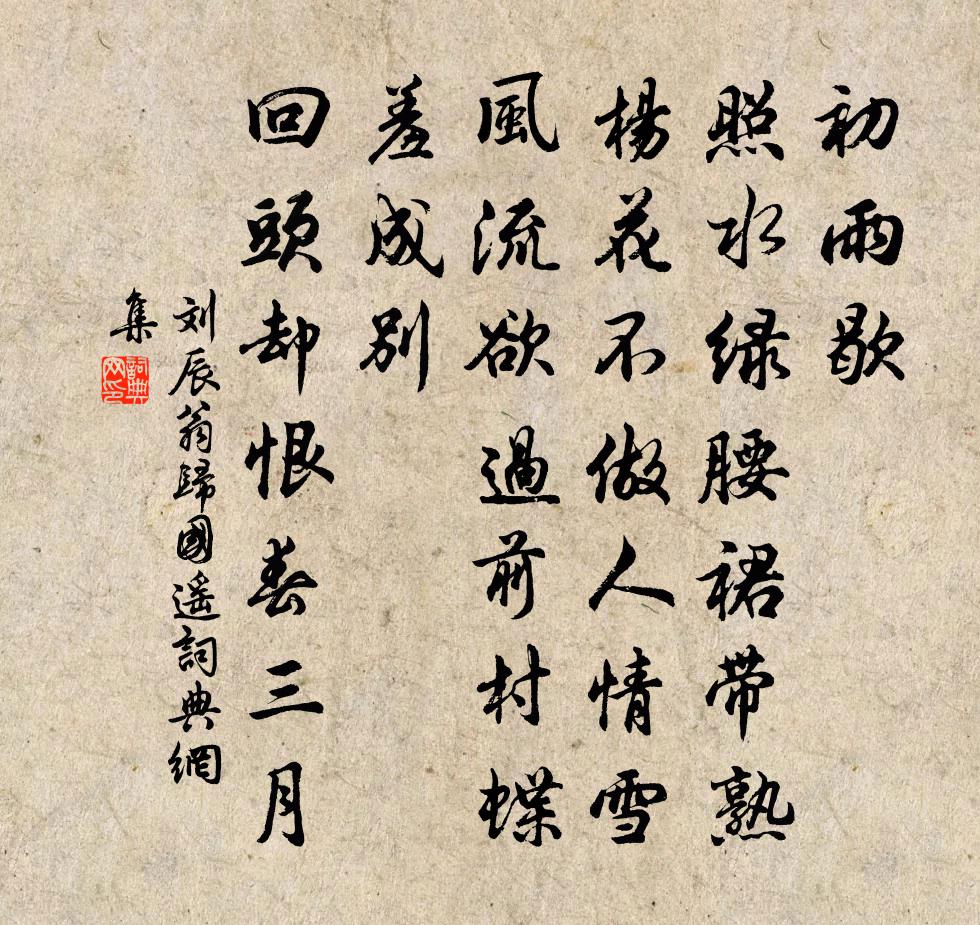 初雨歇
照水绿腰裙带熟
楊花不做人情雪
風流欲過前村蝶
羞成别
回頭却恨春三月
刘辰翁歸國遥詞典網
集
詞典
网印